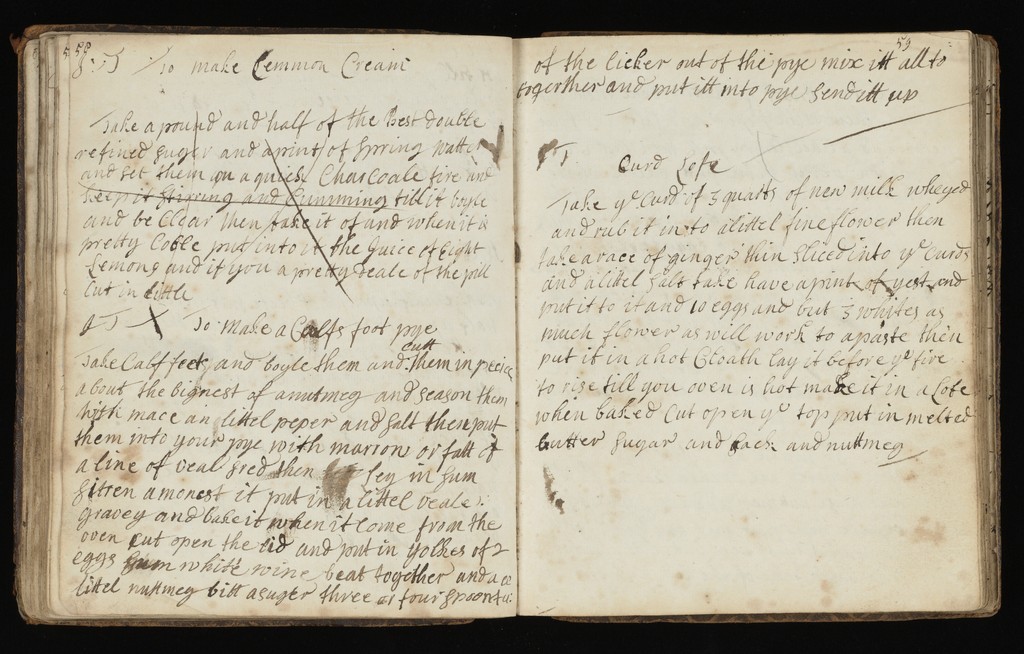 58
To make Lemmon Cream
Take a pound and half of the Best double
refined suger and a pint of spring watter
and set them on a quick Charcoale fire and
keep it stirring and scumming till it boyle
and be Clear then take it of and when it is
pretty Coole put into it the Juice of Eight
Lemons and if you a pretty deale of the pill
Cut in little
To Make a Calfs foot pye
Take Calf feet and boyle them and cutt them in peices
about the bigness of a nutmeg and season them
with mace an littel peper and salt then put
them into your pye with marrow or fatt of
a line of veal sred then lay in sum
sitren amonest it put in a littel veale
gravey and bake it when it come from the
oven cut open the lid and put in yolkes of 2
eggs sum white wine beat together and a
littel nuttmeg bitt a suger three or four spoonfu:
59
of the licker out of the pye mix itt all to
togerther and put itt into pye send itt up
Curd Lofe
Take ye Curd of 3 quarts of new milk wheyed
and rub it in to a littel fine flower then
take a race of ginger thin sliced into ye Curds
and a littel salt take have a pint of yest and
put it to it and 10 eggs and but 3 whites as
much flower as will work to a paste then
put it in a hot Cloath lay it before ye fire
to rise till you oven is hot make it in a Lofe
when baked Cut open ye top put in melted
butter sugar and sack and nuttmeg